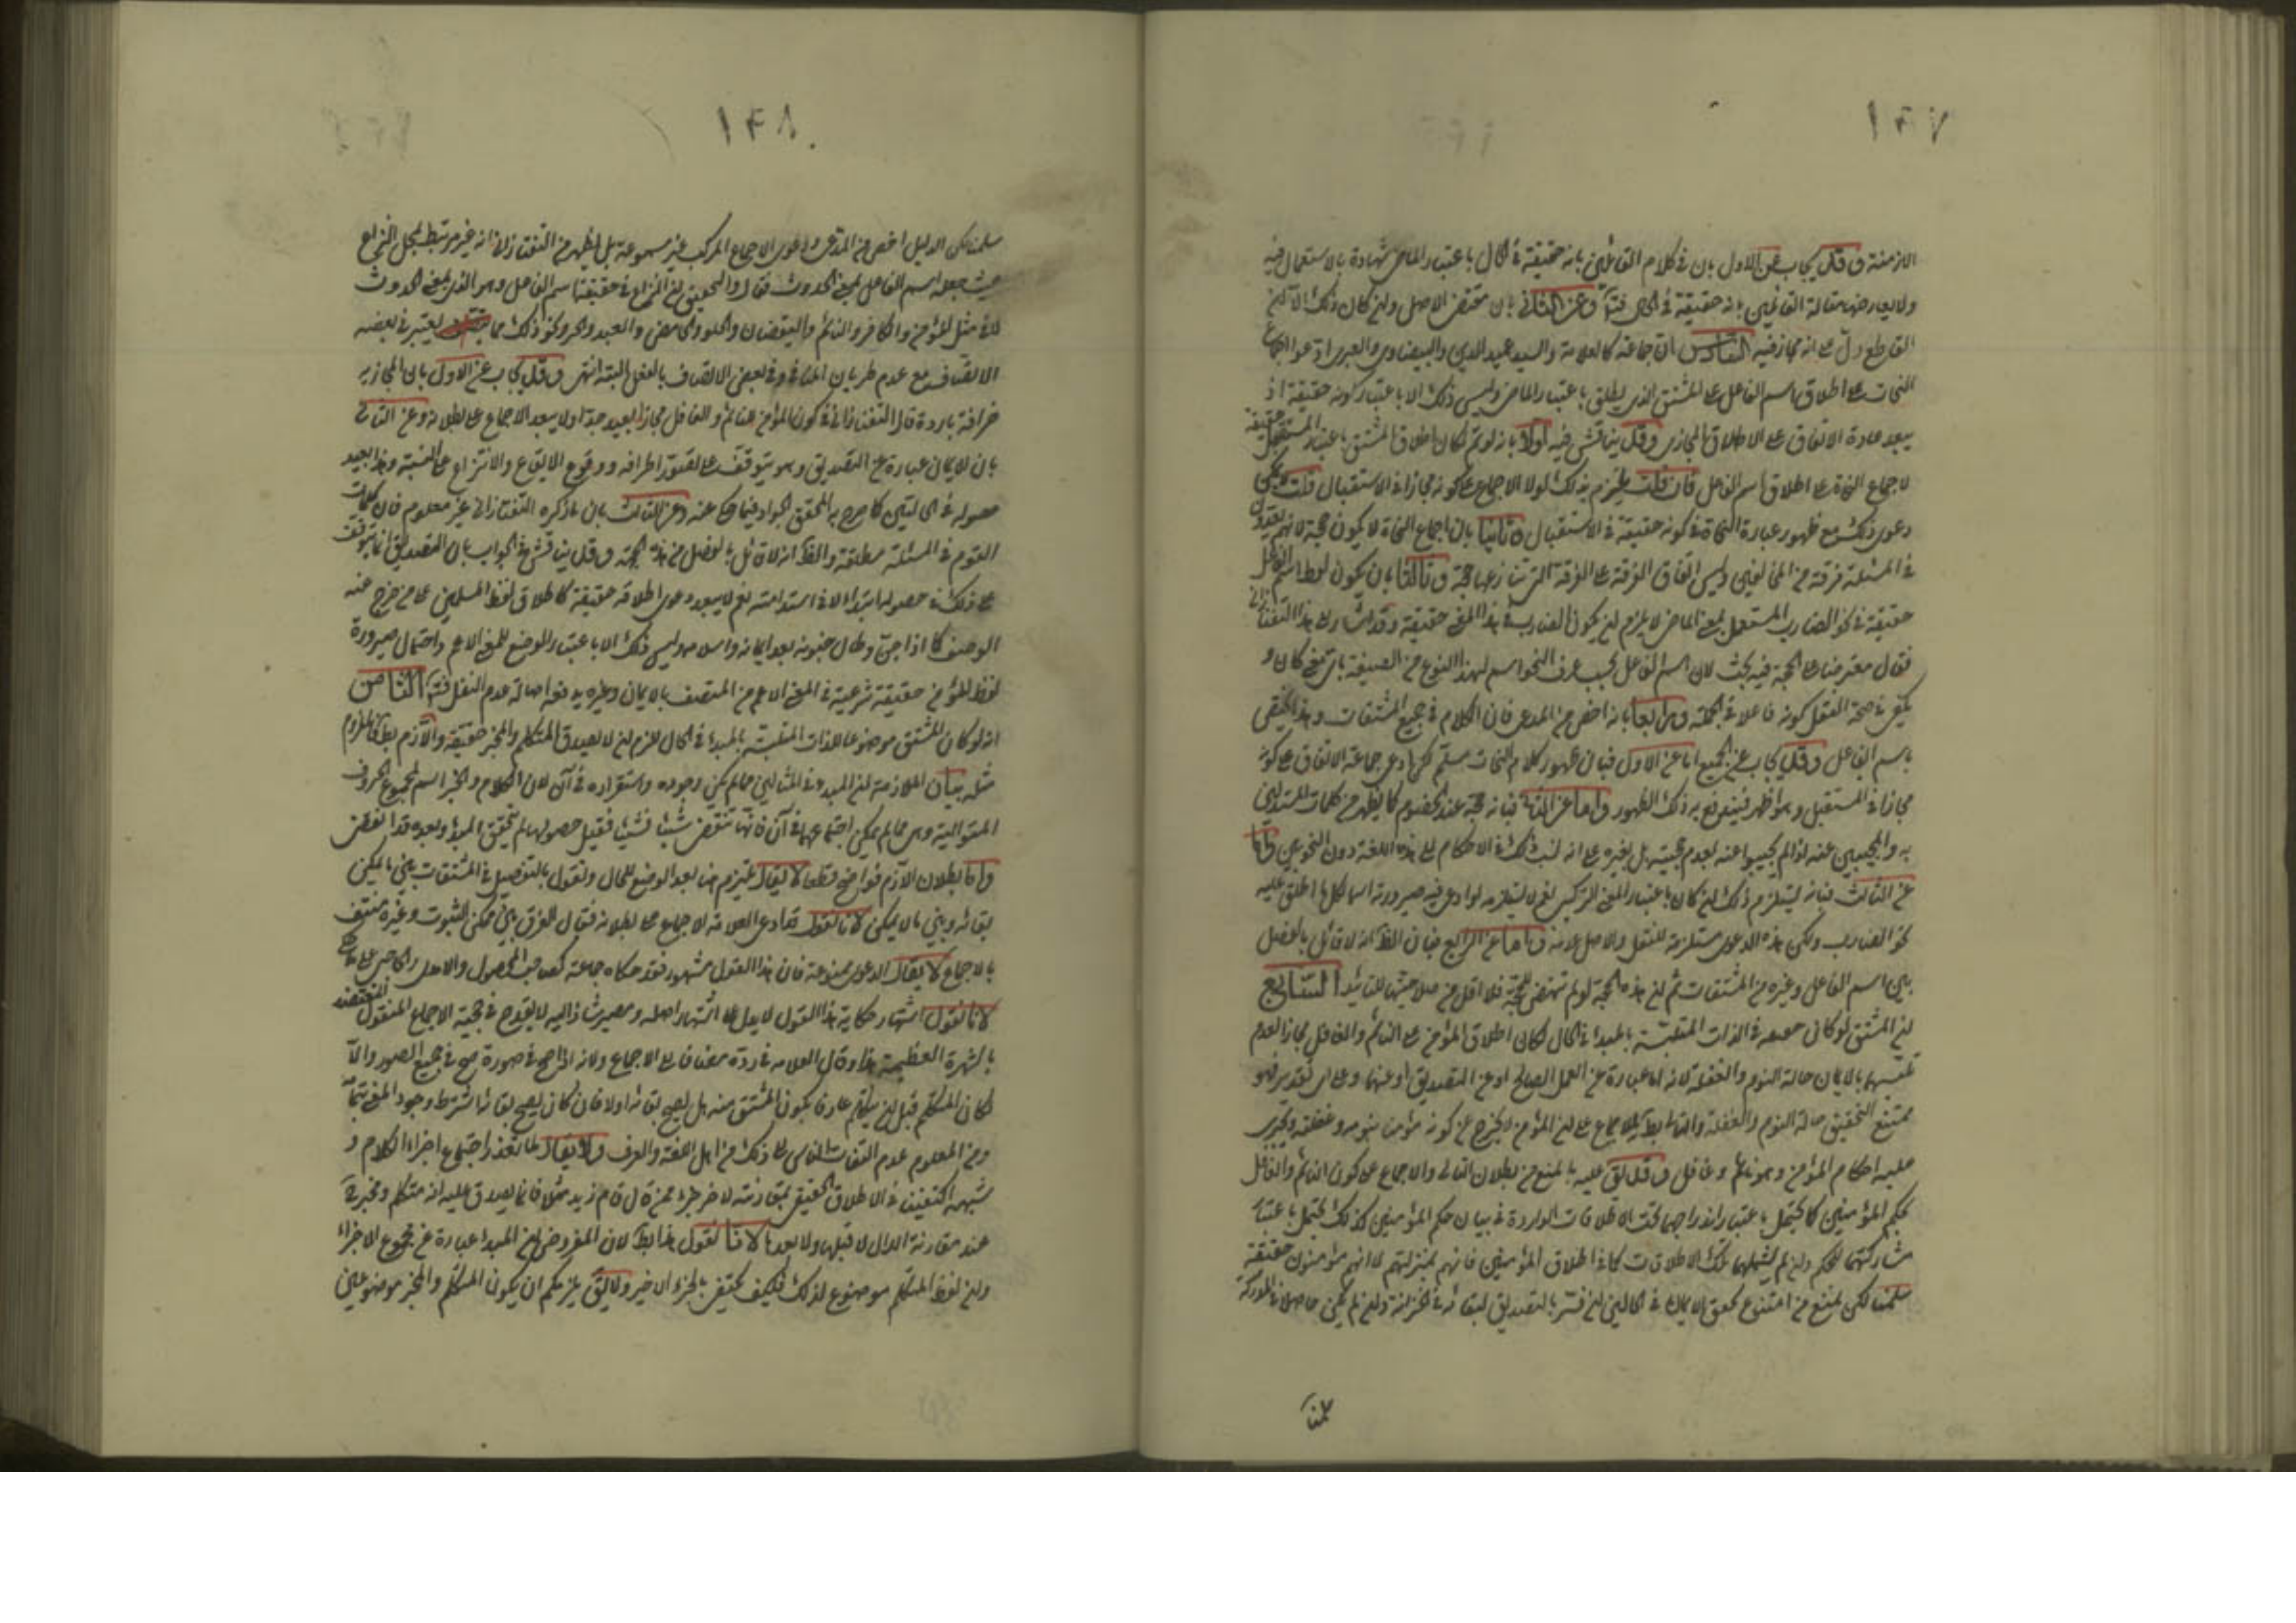 ١٤٧
الازمنة وقد يجاب عن الاول بان في كلام القائلين بانه حقيقة في الحال باعتبار الماضي شهادة بالاستعمال فيه
ولا يعارضها مقالة القائلين بانه حقيقة في الحال وعن الثاني بان مقتضى الاصل وان كان ذلك الا ان
القاطع دل على انه مجاز فيه السادس ان جماعة كالعلامة والسيد عميد الدين والبيضاوي والعبري ادعوا اجماع
النحات على اطلاق اسم الفاعل على المشتق الذي يطلق باعتبار الماضي وليس ذلك الا باعتبار كونه حقيقة اذ
يبعد عادة الاتفاق على الاطلاق المجازي وقد يناقش فيه اولا بانه لو تم لكان اطلاق المشتق باعتبار المستقبل حقيقة
لاجماع النحاة على اطلاق اسم الفاعل فان قلت يلتزم بذلك لولا الاجماع على كونه مجازا في الاستقبال قلت يمكن
دعوى ذلك مع ظهور عبارة النحاة في كونه حقيقة في الاستقبال وثانيا بان اجماع النحاة لا يكون حجة لانهم
في المسئلة فرقة من المخالفين وليس اتفاق الفرقة على الفرقة التي تنازعها حجة وثالثا بان كون لفظ اسم الفاعل
حقيقة في نحو الضارب المستعمل بمعنى الماضي لا يلزم ان يكون الضارب في هذا المعنى حقيقة وقد اشار الى هذا التفتازاني
فقال معترضا على الحجة فيه بحث لان اسم الفاعل بحسب عرف النحو اسم لهذا النوع من الصيغة باي معنى كان و
يكفي في صحة النقل كونه فاعلا في الجملة ورابعا بانه اخص من المدعى فان الكلام في جميع المشتقات وهذا يختص
باسم الفاعل وقد يجاب عن الجميع اما عن الاول فبان ظهور كلام النحات مسلم لكن ادعى جماعة الاتفاق على كونه
مجازا في المستقبل وهو اظهر فيندفع به ذلك الظهور واما عن الثاني فبانه حجة عند الخصوم كما يظهر من كلمات المستدلين
به والمجيبين عنه اذ لم يجيبوا عنه بعدم حجيته بل بغيره على انه لا شك في الاحكام الى هذه اللغة دون النحويين واما
عن الثالث فبانه يستلزم ذلك ان كان باعتبار المعنى التركيبي نعم لا يستلزمه لو ادعى فيه صيرورته اسما لكل ما اطلق عليه
نحو الضارب ولكن هذه الدعوى مستلزمة للنقل والاصل عدمه واما عن الرابع فبان الظ انه لا قائل بالفصل
بين اسم الفاعل وغيره من المشتقات ثم ان هذه الحجة لو لم تنهض لحجة فلا اقل من صلاحيتها للتأييد السابع
ان المشتق لو كان حقيقة في الذات المتلبسة بالمبدا في الحال لكان اطلاق المؤمن على النائم والغافل مجازا لعدم
تلبسهما بالايمان حالة النوم والغفلة لانه اما عبارة عن العمل الصالح او عن التصديق او عنهما وعلى اي تقدير فهو
ممتنع التحقيق حالة النوم والغفلة والتالي بط للاجماع على ان المؤمن لا يخرج عن كونه مؤمنا بنومه وغفلته ويجري
عليه احكام المؤمن وهو نائم وغافل وقد يق عليه بالمنع من بطلان التالي والاجماع على كون النائم والغافل
بحكم المؤمنين كما يحتمل باعتبار اندراجهما تحت الاطلاقات الواردة في بيان حكم المؤمنين كذلك يحتمل باعتبار
مشاركتهما للحكم وان لم يشملهما تلك الاطلاقات كما في اطلاق المؤمنين فانهم بمنزلتهم لا انهم مؤمنون حقيقة
سلمنا لكن نمنع من امتناع تحقق الايمان في الحالين ان فسر بالتصديق لبقائه في الخزانة وان لم يكن حاصلا في المدركة
سلمنا
١٤٨
سلمنا لكن الدليل اخص من المدعى ودعوى الاجماع المركب غير مسموعة بل يظهر من التفتازاني انه غير مرتبط بمحل النزاع
حيث جعله اسم الفاعل بمعنى الحدوث فقال والتحقيق ان النزاع في حقيقة اسم الفاعل وهو الذي بمعنى الحدوث
لا في مثل المؤمن والكافر والنائم واليقضان والحلو والحامض والعبد والحر ونحو ذلك مما يعتبر في بعضه
الاتصاف مع عدم طريان المنافي وفي بعض الاتصاف بالفعل البتة انتهى وقد يجاب عن الاول بان المجازية
خرافة باردة قال التفتازاني في كون المؤمن للنائم والغافل مجازا بعيد جدا ولا يبعد الاجماع على بطلانه وعن الثاني
بان الايمان عبارة عن التصديق وهو يتوقف على تصور اطرافه ووقوع الايقاع والانتزاع على النسبة وهذا بعيد
حصوله في الحالتين كما صرح به المحقق الجواد فيما حكي عنه وعن الثالث بان ما ذكره التفتازاني غير معلوم فان كلمات
القوم في المسئلة مطلقة والظ انه لا قائل بالفصل من هذه الجهة وقد يناقش في الجواب بان التصديق انما يتوقف
على ذلك في حصوله ابتداء لا في استدامته نعم لا يبعد دعوى اطلاقه حقيقة كاطلاق لفظ المسلمين على من خرج عنه
الوصف كما اذا جن وطال جنونه بعد ايمانه واسلامه وليس ذلك الا باعتبار الوضع للمعنى الاعم واحتمال صيرورة
لفظ المؤمن حقيقة شرعية في المعنى الاعم من المتصف بالايمان وغيره يدفعه اصالة عدم النقل فتأمل الثامن
انه لو كان المشتق موضوعا للذات المتلبسة بالمبدا في الحال للزم ان لا يصدق المتكلم والمخبر حقيقة واللازم بط فالملزوم
مثله بيان الملازمة ان المبدء في المثالين مما لم يمكن وجوده واستقراره في آن لان الكلام والخبر اسم لمجموع الحروف
المتوالية وهي مما لم يمكن اجتماعها في آن فانها تنقضي شيئا فشيئا فقبل حصولها لم يتحقق المبدء وبعده قد انقضى
واما بطلان اللازم فواضح قطعا لا يقال نلتزم هنا بعد الوضع للحال ونقول بالتفصيل في المشتقات بين ما يمكن
بقائه وبين ما لا يمكن لانا نقول قد ادعى العلامة الاجماع على بطلانه فقال الفرق بين ممكن الثبوت وغيره منتف
بالاجماع لا يقال الدعوى ممنوعة فان هذا القول مشهور فقد حكاه جماعة كصاحب المحصول والامدي والحاجبي
لانا نقول اشتهار حكاية هذا القول لا يدل على اشتهار اصله ومصير شاذ اليه لا يقدح في حجية الاجماع المنقول المعتضد
بالشهرة العظيمة هذا وقال العلامة في رده مضافا الى الاجماع ولانه اذا صح في صورة صح في جميع الصور والا
لكان المتكلم قبل ان يتكلم عارفا بكون المشتق منه هل يصح بقائه اولا فان كان يصح بقائه اشترط وجود المعنى
ومن المعلوم عدم التفات الناس الى ذلك من اهل اللغة والعرف ولا يقال لما تعذر اجتماع اجزاء الكلام و
شبهه اكتفينا في الاطلاق الحقيقي بمقارنته لاخر جزء فمن قال قام زيد مثلا فانما يصدق عليه انه متكلم ومخبر
عند مقارنة الدال لا قبلها ولا بعدها لانا نقول هذا بط لان المفروض ان المبدا عبارة عن مجموع الاجزاء
وان لفظ المتكلم موضوع لذلك فكيف يكتفى بالجزء الاخير ولا يق يلزمكم ان يكون المتكلم والمخبر موضوعين